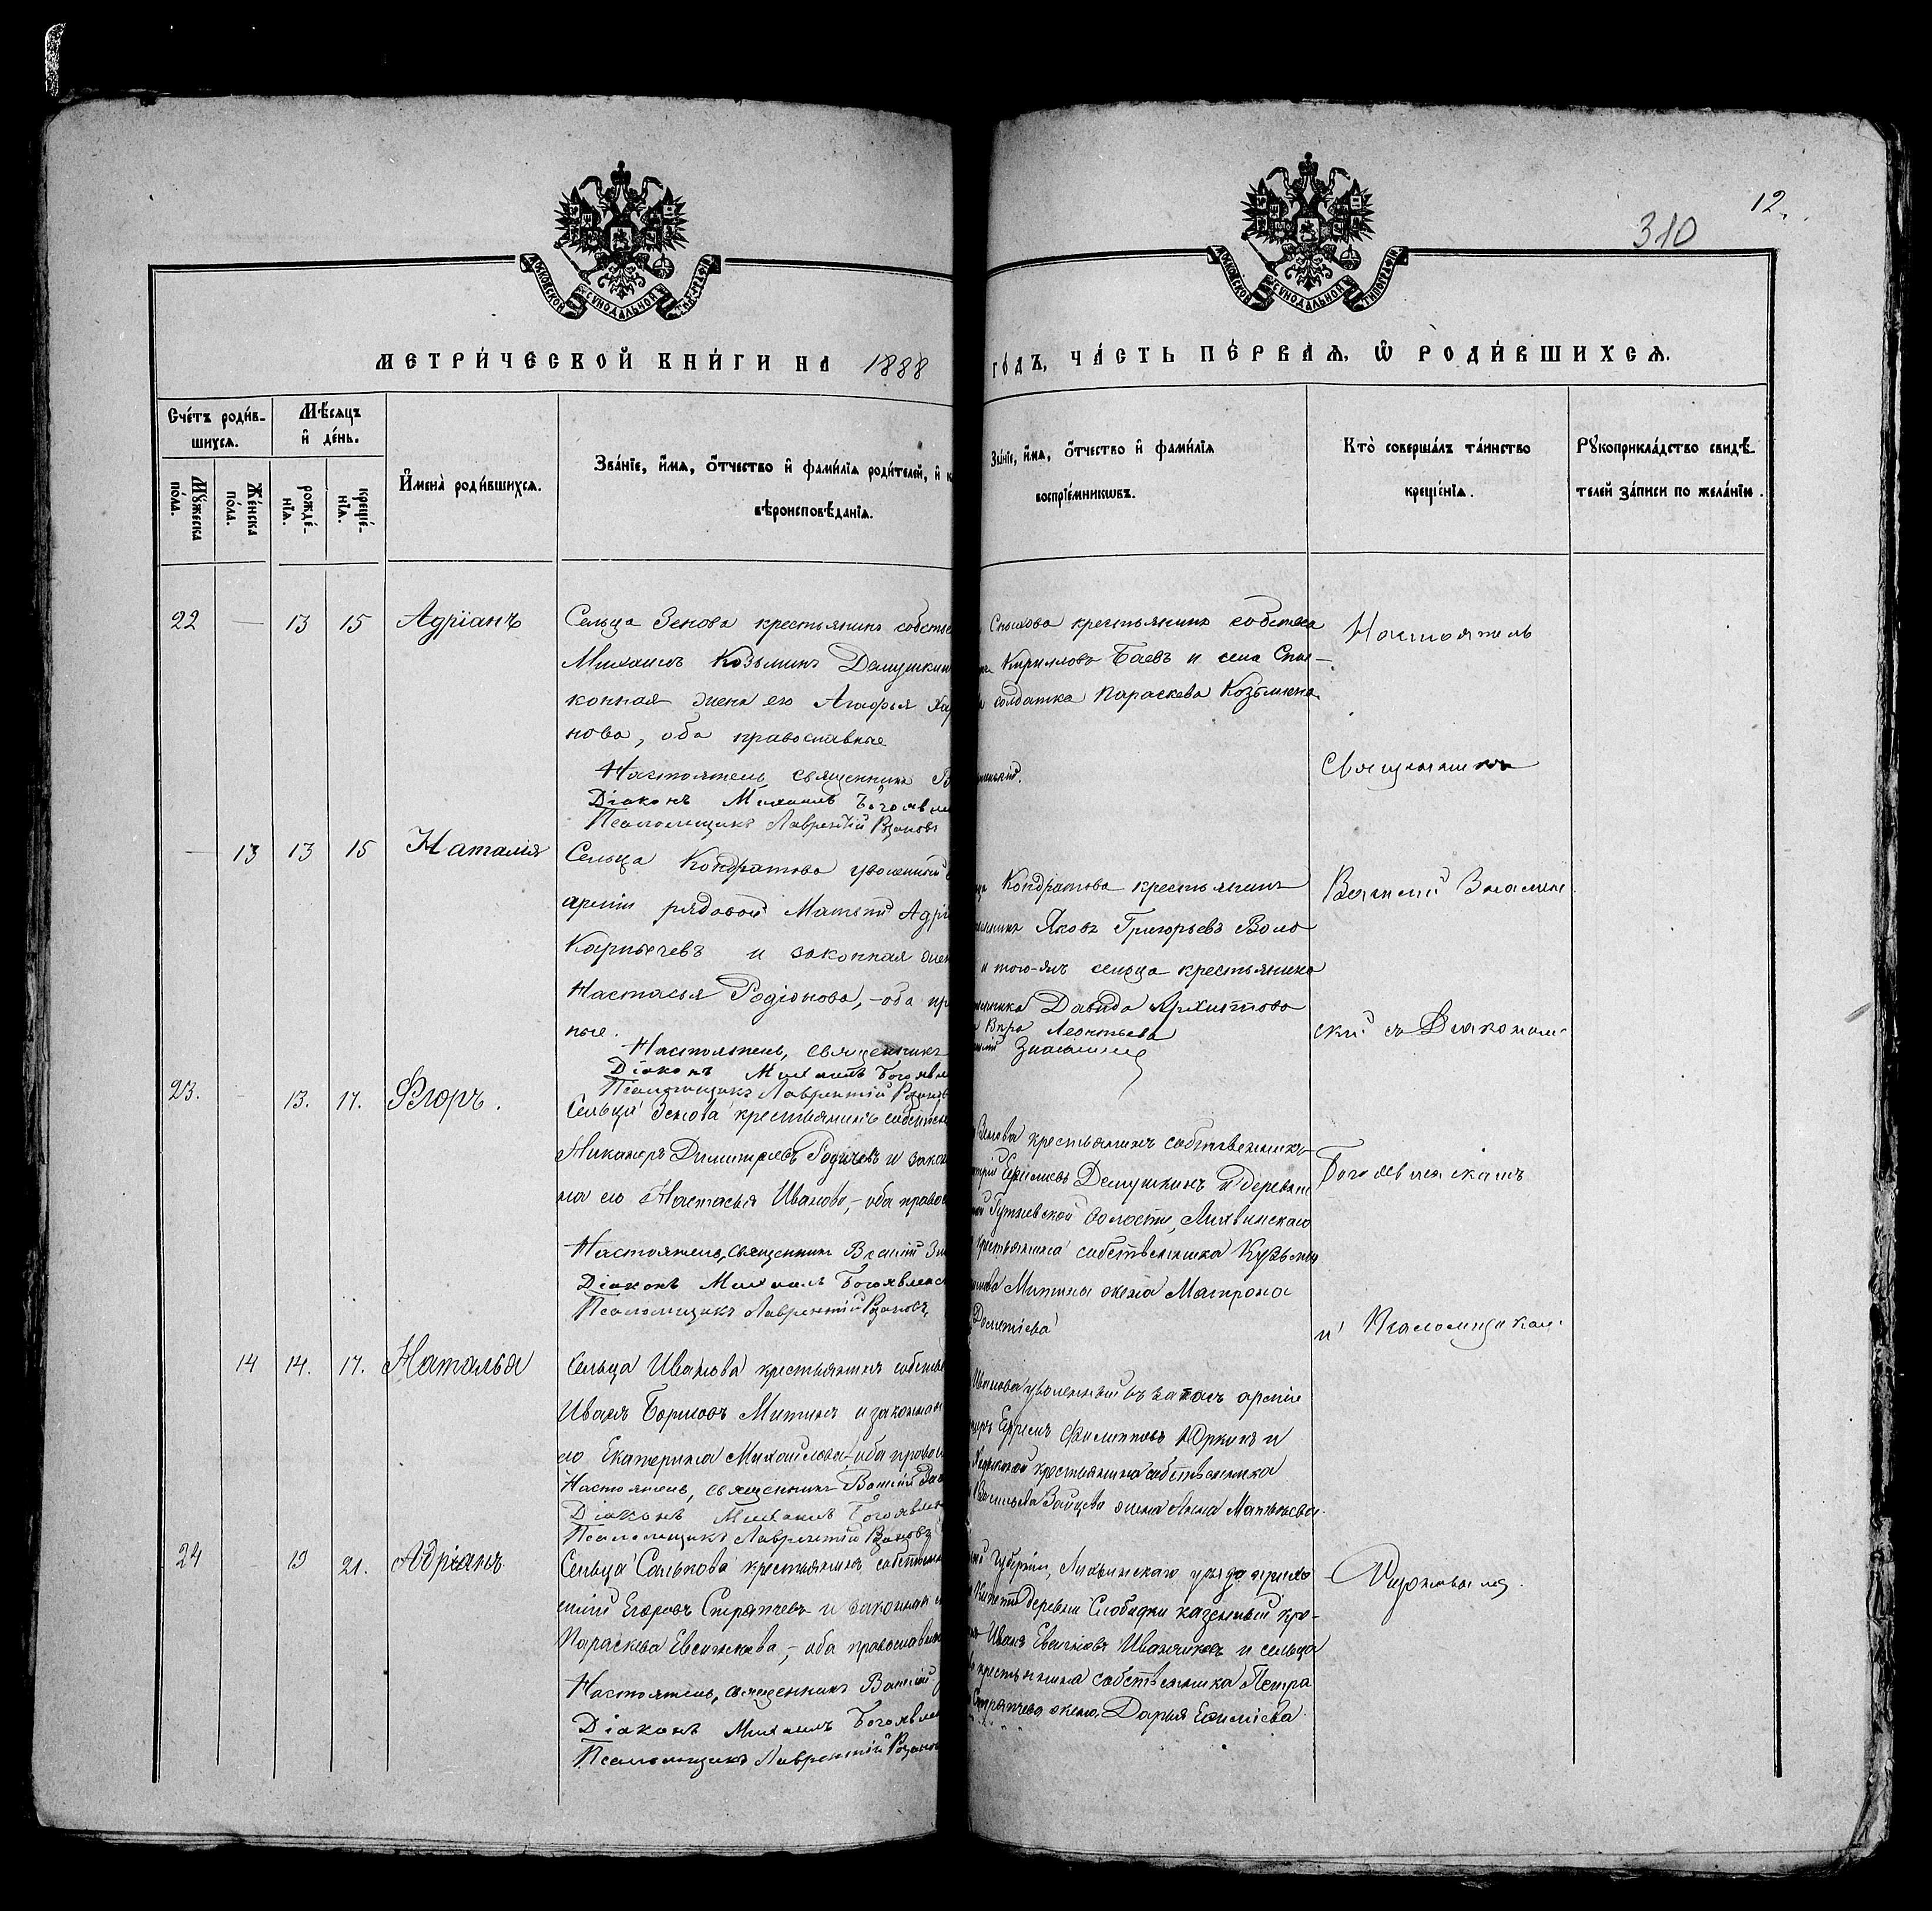 12.
310
МОСКОВСКОЙ СѴНОДАЛЬНОЙ ТИПОГРАФІИ
МОСКОВСКОЙ СѴНОДАЛЬНОЙ ТИПОГРАФІИ
МЕТРИ́ЧЕСКОЙ КНИ́ГИ НА 1888
ГО́ДЪ, ЧА́СТЬ ПЕ́РВАЯ, Ѡ҆ РОДИ́ВШИХСЯ.
Сче́тъ роди́в-
шихся.
Мѣ́сяцъ
и҆ де́нь.
Мꙋ́жеска
по́ла.
Же́нска
по́ла.
рожде́-
нїя.
креще́-
нїя.
И҆мена̀ роди́вшихся.
Зва́нїе, и҆́мя, ѻ҆́тчество и҆ фами́лїя роди́телей, и҆ к
вѣроисповѣ́данїя.
Зва́нїе, и҆́мя, ѻ҆́тчество и҆ фами́лїя
воспрїе́мникѡвъ.
Кто̀ соверша́лъ та́инство
креще́нїя.
Рꙋкоприкла́дство свидѣ́-
телей за́писи по жела́нїю.
22 — 13 15 Адріанъ
Сельца Зенова крестьянинъ собстве
Михаилъ Козьминъ Демушкин
конная жена его Агафья Хар
нова, оба православные
Настоятель, священникъ В
Діаконъ Михаилъ Богоявле
Псаломщикъ Лаврентій Рзановъ
крестьянинъ собстве
Кирилловъ Баевъ и села Спы-
солдатка Параскева Козьмина
— 13 13 15 Наталія
Сельца Кондратова уволенный
арміи рядовой Матвѣй Адрі
Карпычевъ и законная жен
Настасья Родіонова, - оба пр
ные.
Настоятель, священникъ
Діаконъ Михаилъ Богоявле
Псаломщикъ Лаврентій Рзановъ
Кондратова крестьянинъ
Яковъ Григорьевъ Воло
и того-жъ сельца крестьянина
Давида Архиппова
Леонтьева
23. 13. 17. Ѳеоръ.
Сельца Зенова крестьянинъ собствен
Никаноръ Димитріевъ Родичевъ и закон
на его Настасья Иванова, - оба правос
Настоятель, священникъ Василій Зн
Діаконъ Михаилъ Богоявленс
Псаломщикъ Лаврентій Рзановъ
Зенова крестьянинъ собственникъ
Демушкинъ и деревни
волости, Лихвинскаго
крестьянина собственника Кузьмы
Митина жена Матрона
14 14. 17. Наталья
Сельца Иванова крестьянинъ собстве
Иванъ Борисовъ Митинъ и законная
его Екатерина Михайлова, - оба право
Настоятель, священникъ Василій Зн
Діаконъ Михаилъ Богоявле
Псаломщикъ Лаврентій Рзановъ
Иванова уволенный въ запасъ арміи
Ефремъ Филипповъ Юркинъ и
крестьянина собственника
Васильева Зайцева жена Анна Матвѣева.
24 19 21. Адріанъ
Сельца Санькова крестьянинъ собствен
Егоровъ Стряпчевъ и законная
Параскева Евсигнеева, - оба православны
Настоятель, священникъ Василій
Діаконъ Михаилъ Богоявле
Псаломщикъ Лаврентій Рзановъ
губерніи, Лихвинскаго уѣзда
деревни Слободки казенный кре-
Иванъ Евсигнѣевъ и сельца
крестьянина собственника Петра
Стряпчева жена, Дарья
Настоятель
Священникъ
Василій Знамен
скій съ Діакономъ
Богоявленскимъ
и Псаломщиком
Рзановымъ.